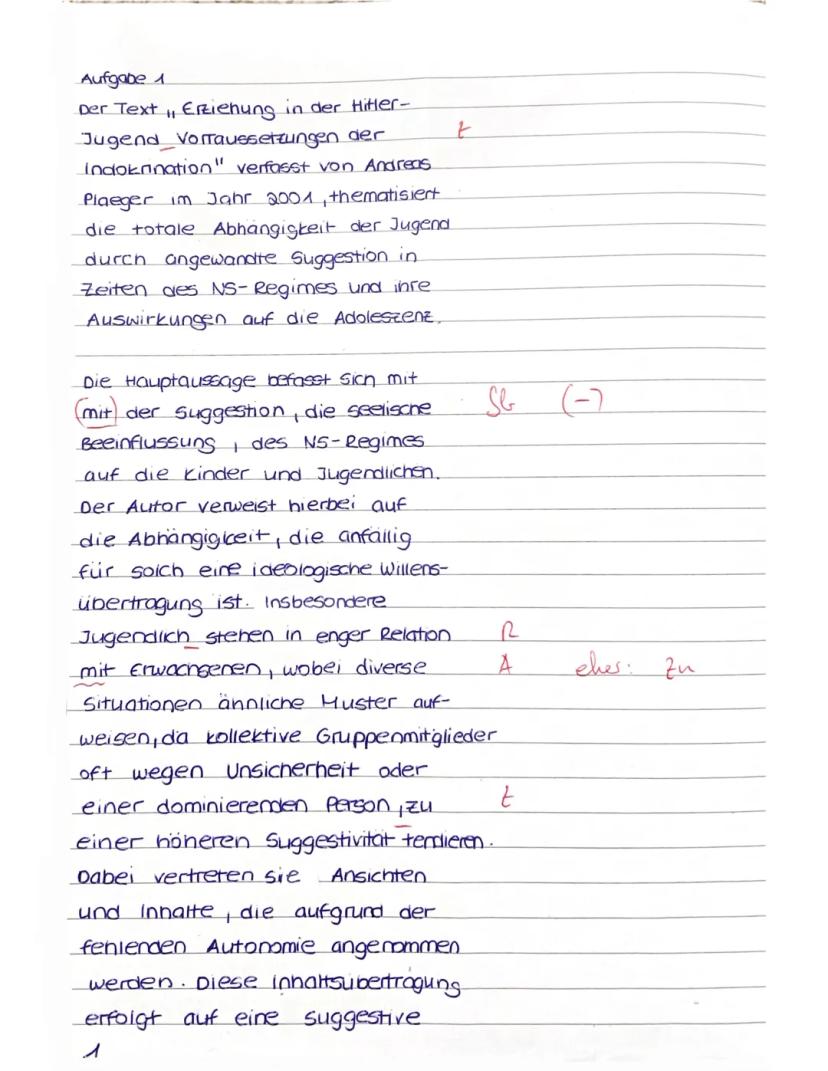 Aufgabe 1
Der Text „Erziehung in der Hitler-
Jugend Vorraussetzungen der t
Indoktrination" verfasst von Andreas
Plaeger im Jahr 2001, thematisiert
die totale Abhängigkeit der Jugend
durch angewandte Suggestion in
Zeiten des NS-Regimes und ihre
Auswirkungen auf die Adoleszenz.
Die Hauptaussage befasst sich mit
mit der Suggestion, die seelische Sb (-)
Beeinflussung, des NS-Regimes
auf die Kinder und Jugendlichen.
Der Autor verweist hierbei auf
die Abhängigkeit, die anfällig
für solch eine ideologische Willens-
übertragung ist. Insbesondere
Jugendlich stehen in enger Relation R
mit Erwachsenen, wobei diverse A eher: zu
Situationen ähnliche Muster auf-
weisen, da kollektive Gruppenmitglieder
oft wegen Unsicherheit oder
einer dominierenden Person, zu t
einer höheren Suggestivität tendieren.
Dabei vertreten sie Ansichten
und Inhalte, die aufgrund der
fehlenden Autonomie angenommen
werden. Diese Inhaltsübertragung
erfolgt auf eine suggestive
1